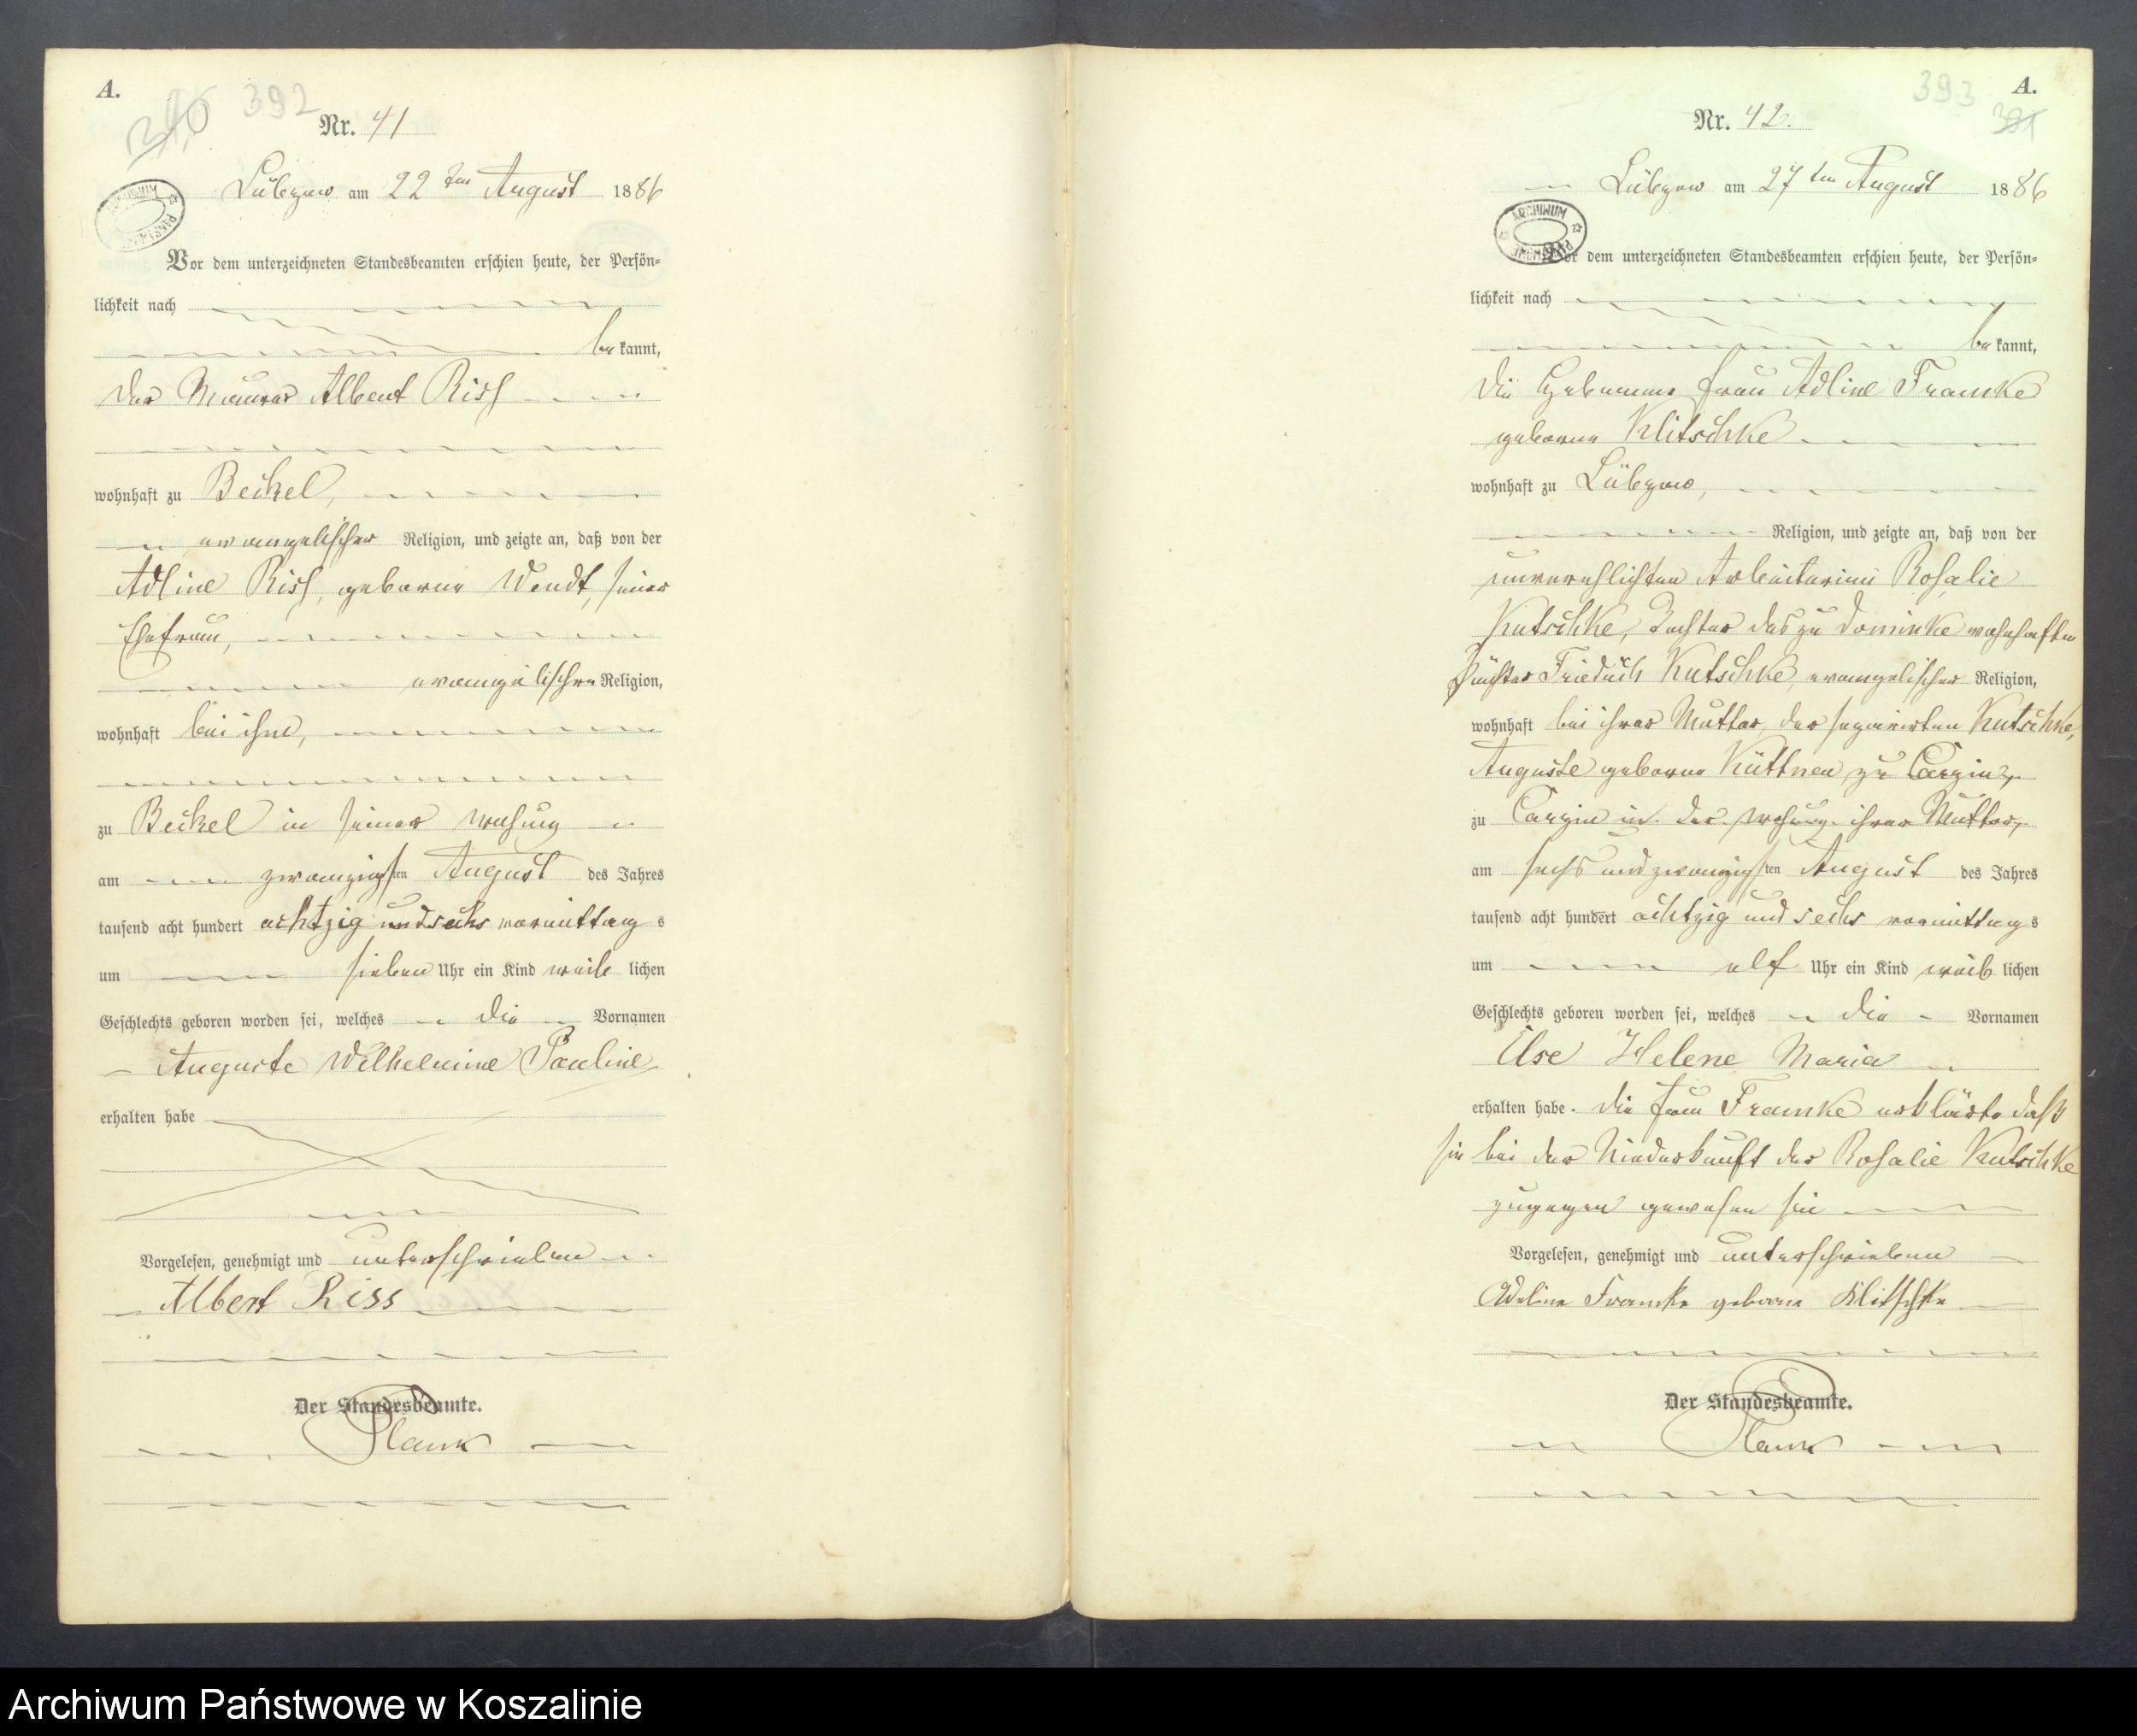 A.
390 392
Nr. 41
Lübzow am 22 ten August 1886
Vor dem unterzeichneten Standesbeamten erschien heute, der Persön=
lichkeit nach
be kannt,
der Maurer Albert Riss
wohnhaft zu Beckel,
evangelischer Religion, und zeigte an, daß von der
Adline Riss, geborne Wendt, seiner
Ehefrau,
evangelischen Religion,
wohnhaft bei ihm,
zu Beckel in seiner Wohung
am zwanzigsten August des Jahres
tausend acht hundert achtzig und sechs vormittag s
um sieben Uhr ein Kind weib lichen
Geschlechts geboren worden sei, welches die Vornamen
Auguste Wilhelmine Pauline
erhalten habe
Vorgelesen, genehmigt und unterschrieben
Albert Riss
Der Standesbeamte.
Plank
A.
393
391
Nr. 42.
Lübzow am 27 ten August 1886
ARCHIWUM
Vor dem unterzeichneten Standesbeamten erschien heute, der Persön=
lichkeit nach
be kannt,
die Hebamme Frau Adline Framke
geborne Klitschke
wohnhaft zu Lübzow,
Religion, und zeigte an, daß von der
unverehlichten Arbeiterinn Rosalie
Kutschke, Tochter des zu Dominke wohnhaften
Friedrich Kutschke, evangelischer Religion,
wohnhaft bei ihrer Mutter, der separirten Kutschke,
Auguste geborne Küttner, zu Carzin,
zu Carzin in der Wohung ihrer Mutter,
am sechs und zwanzigsten August des Jahres
tausend acht hundert achtzig und sechs vormittag s
um elf Uhr ein Kind weib lichen
Geschlechts geboren worden sei, welches die Vornamen
Else Helene Maria
erhalten habe. Die Frau Framke erklärte daß
sie bei der Niederkunft der Rosalie Kutschke
zugegen gewesen sei
Vorgelesen, genehmigt und unterschrieben
Adeline Framke geborne Klitschke
Der Standesbeamte.
Plank
Archiwum Państwowe w Koszalinie